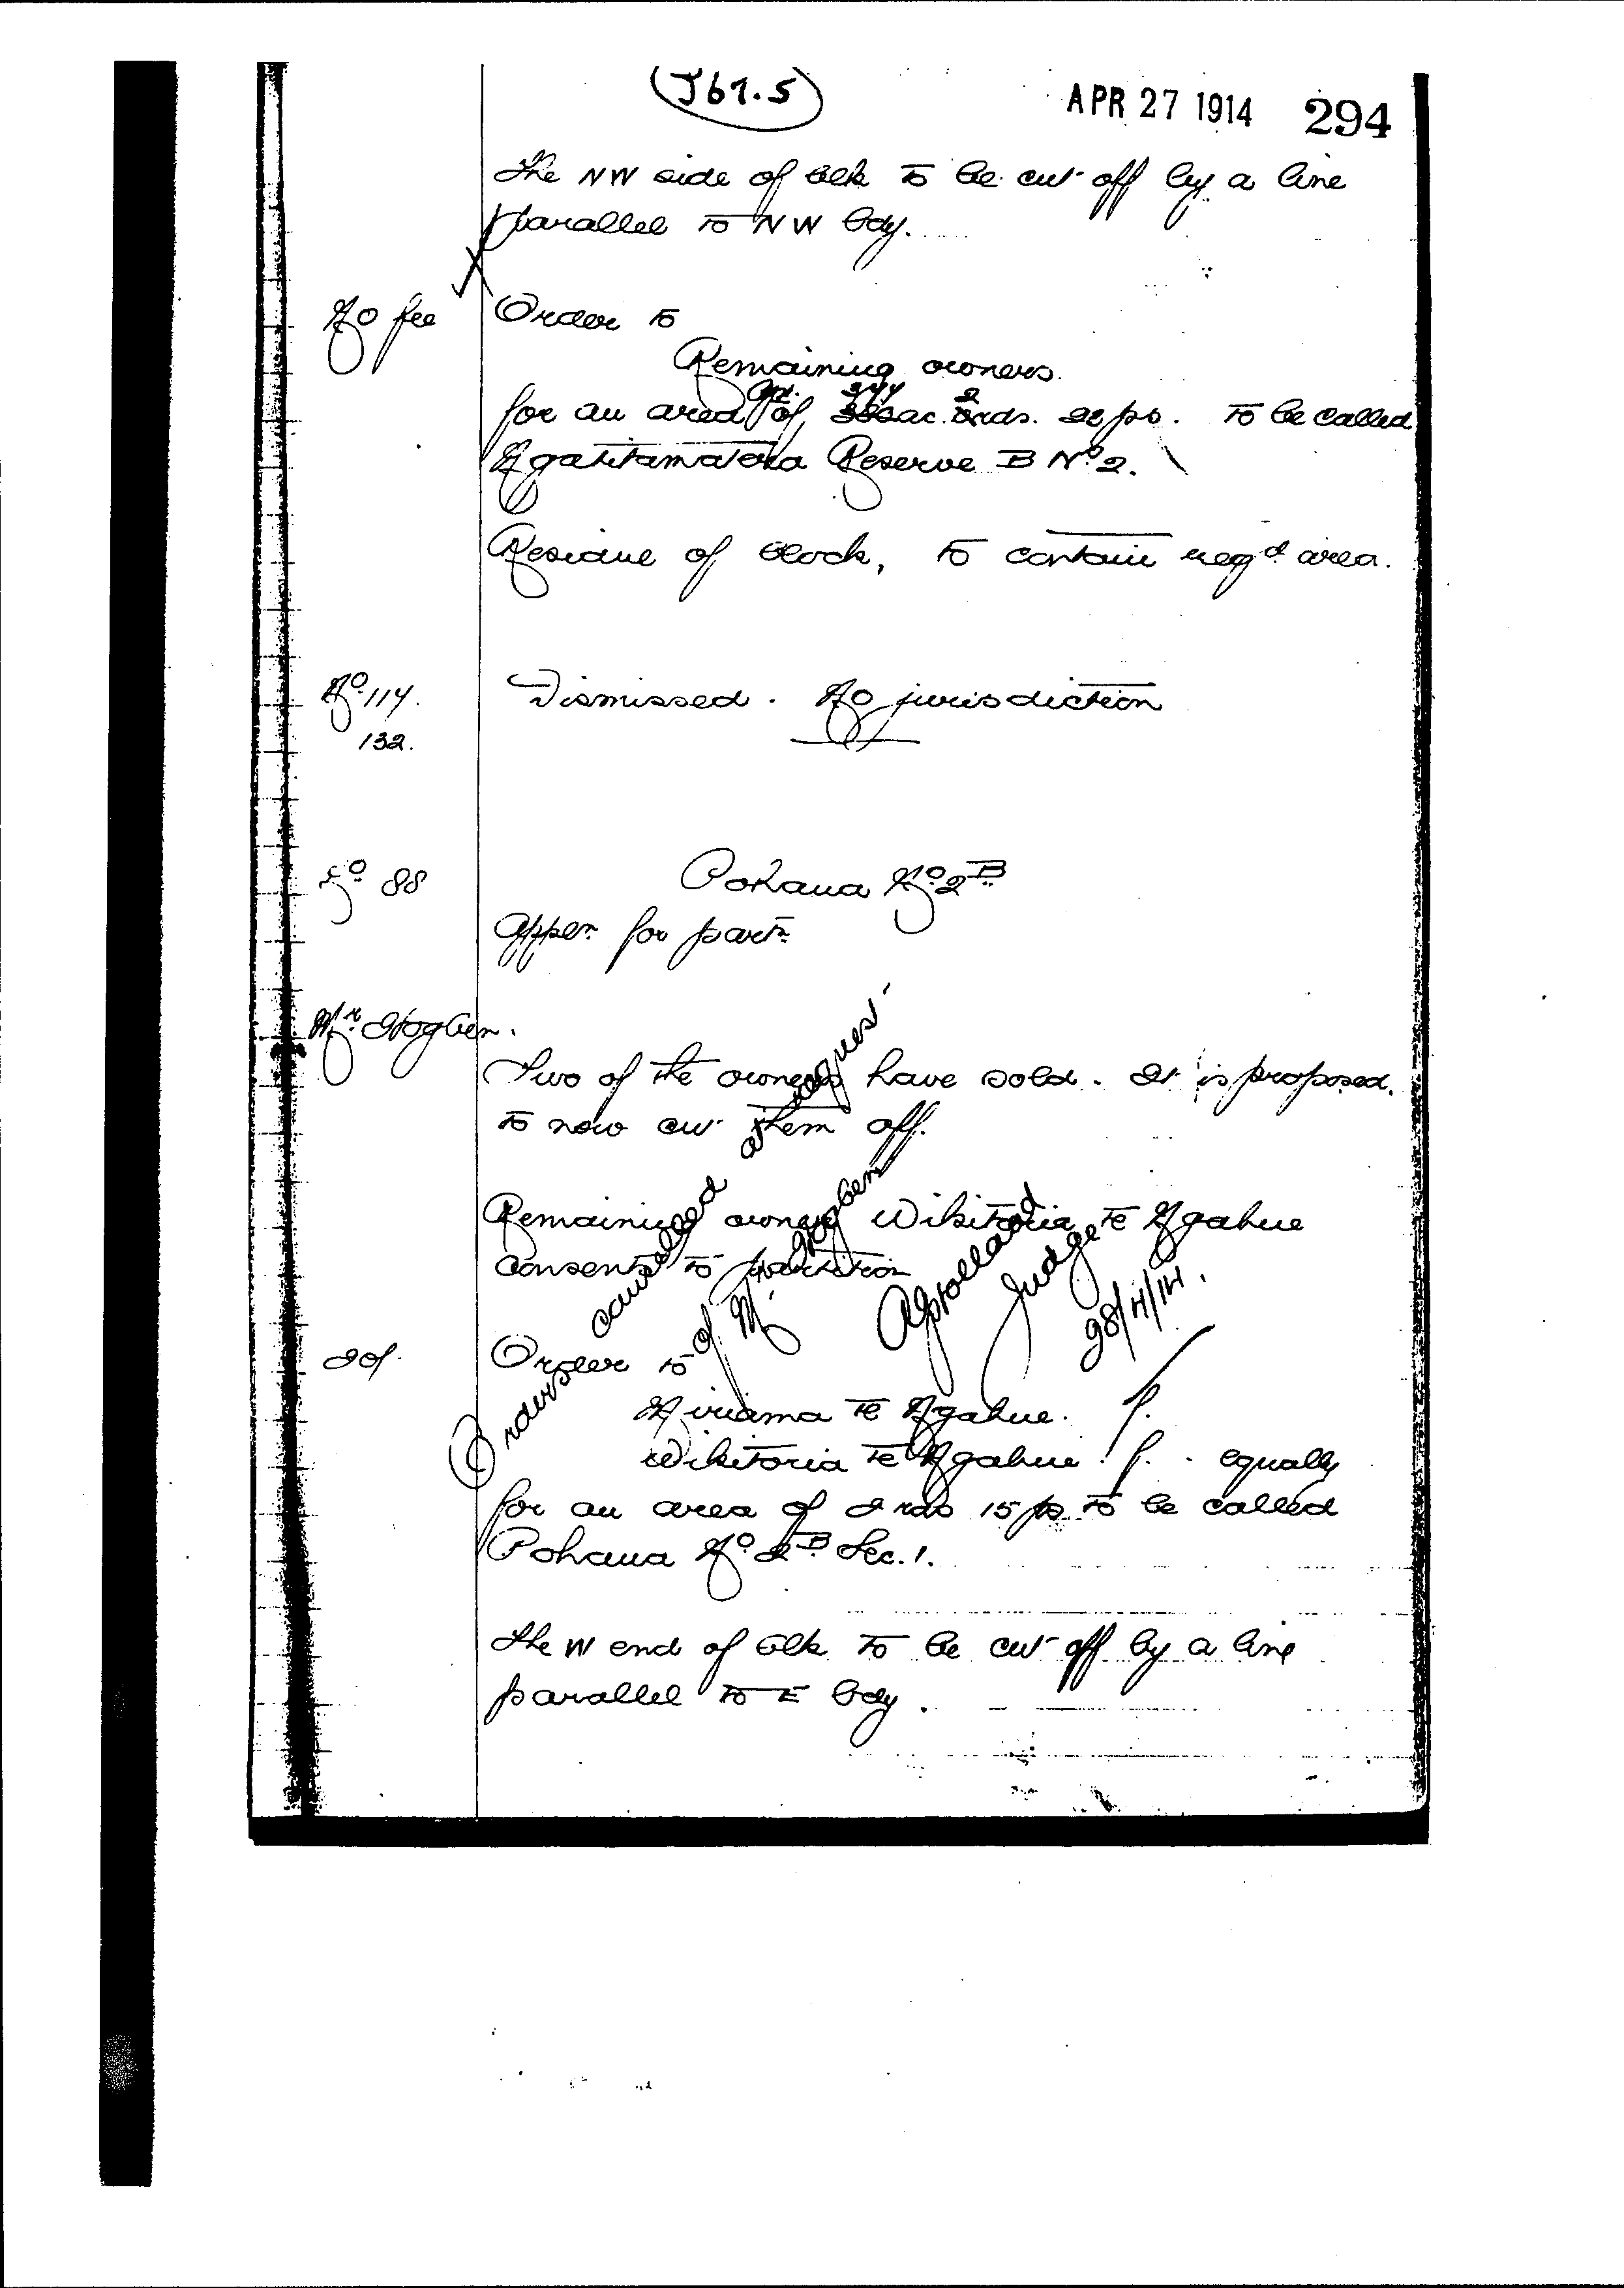 (J67.5)
APR 27 1914 294
The NW side of blk to be cut off by a line
parallel to NW bdy.
No fee Order to
Remaining owners.
for an area of ac. 2 rds. 22 ps. to be called
Ngatitamatera Reserve B No 2.
Residue of block, to contain reqd area.
No 114. Dismissed. No jurisdiction
132.
No 88 Pohaua No 2B
Appln for partn
Mr Hogben.
Two of the owners have sold. It is proposed
to now cut them off.
Remaining owner Wikitoria te Ngahue
consents to partition
Orders cancelled at request
of Mr Hogben
Judge
28/4/14.
20/- Order to
Miriama te Ngahue. f.
Wikitoria te Ngahue f. equally
for an area of 2 rds 15 ps to be called
Pohaua No 2B Sec. 1.
The W end of blk to be cut off by a line
parallel to E bdy.